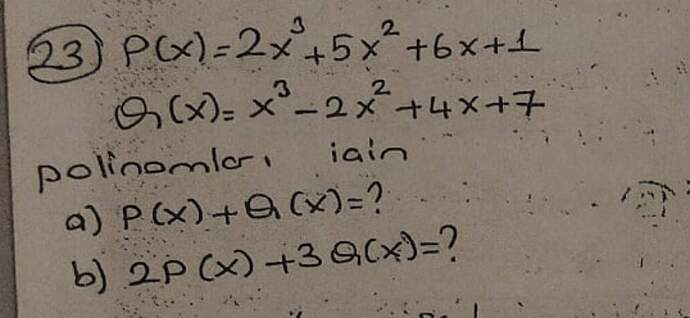 23) P(x)=2x³+5x²+6x+1
Q(x)=x³-2x²+4x+7
polinomları için
a) P(x)+Q(x)=?
b) 2P(x)+3Q(x)=?